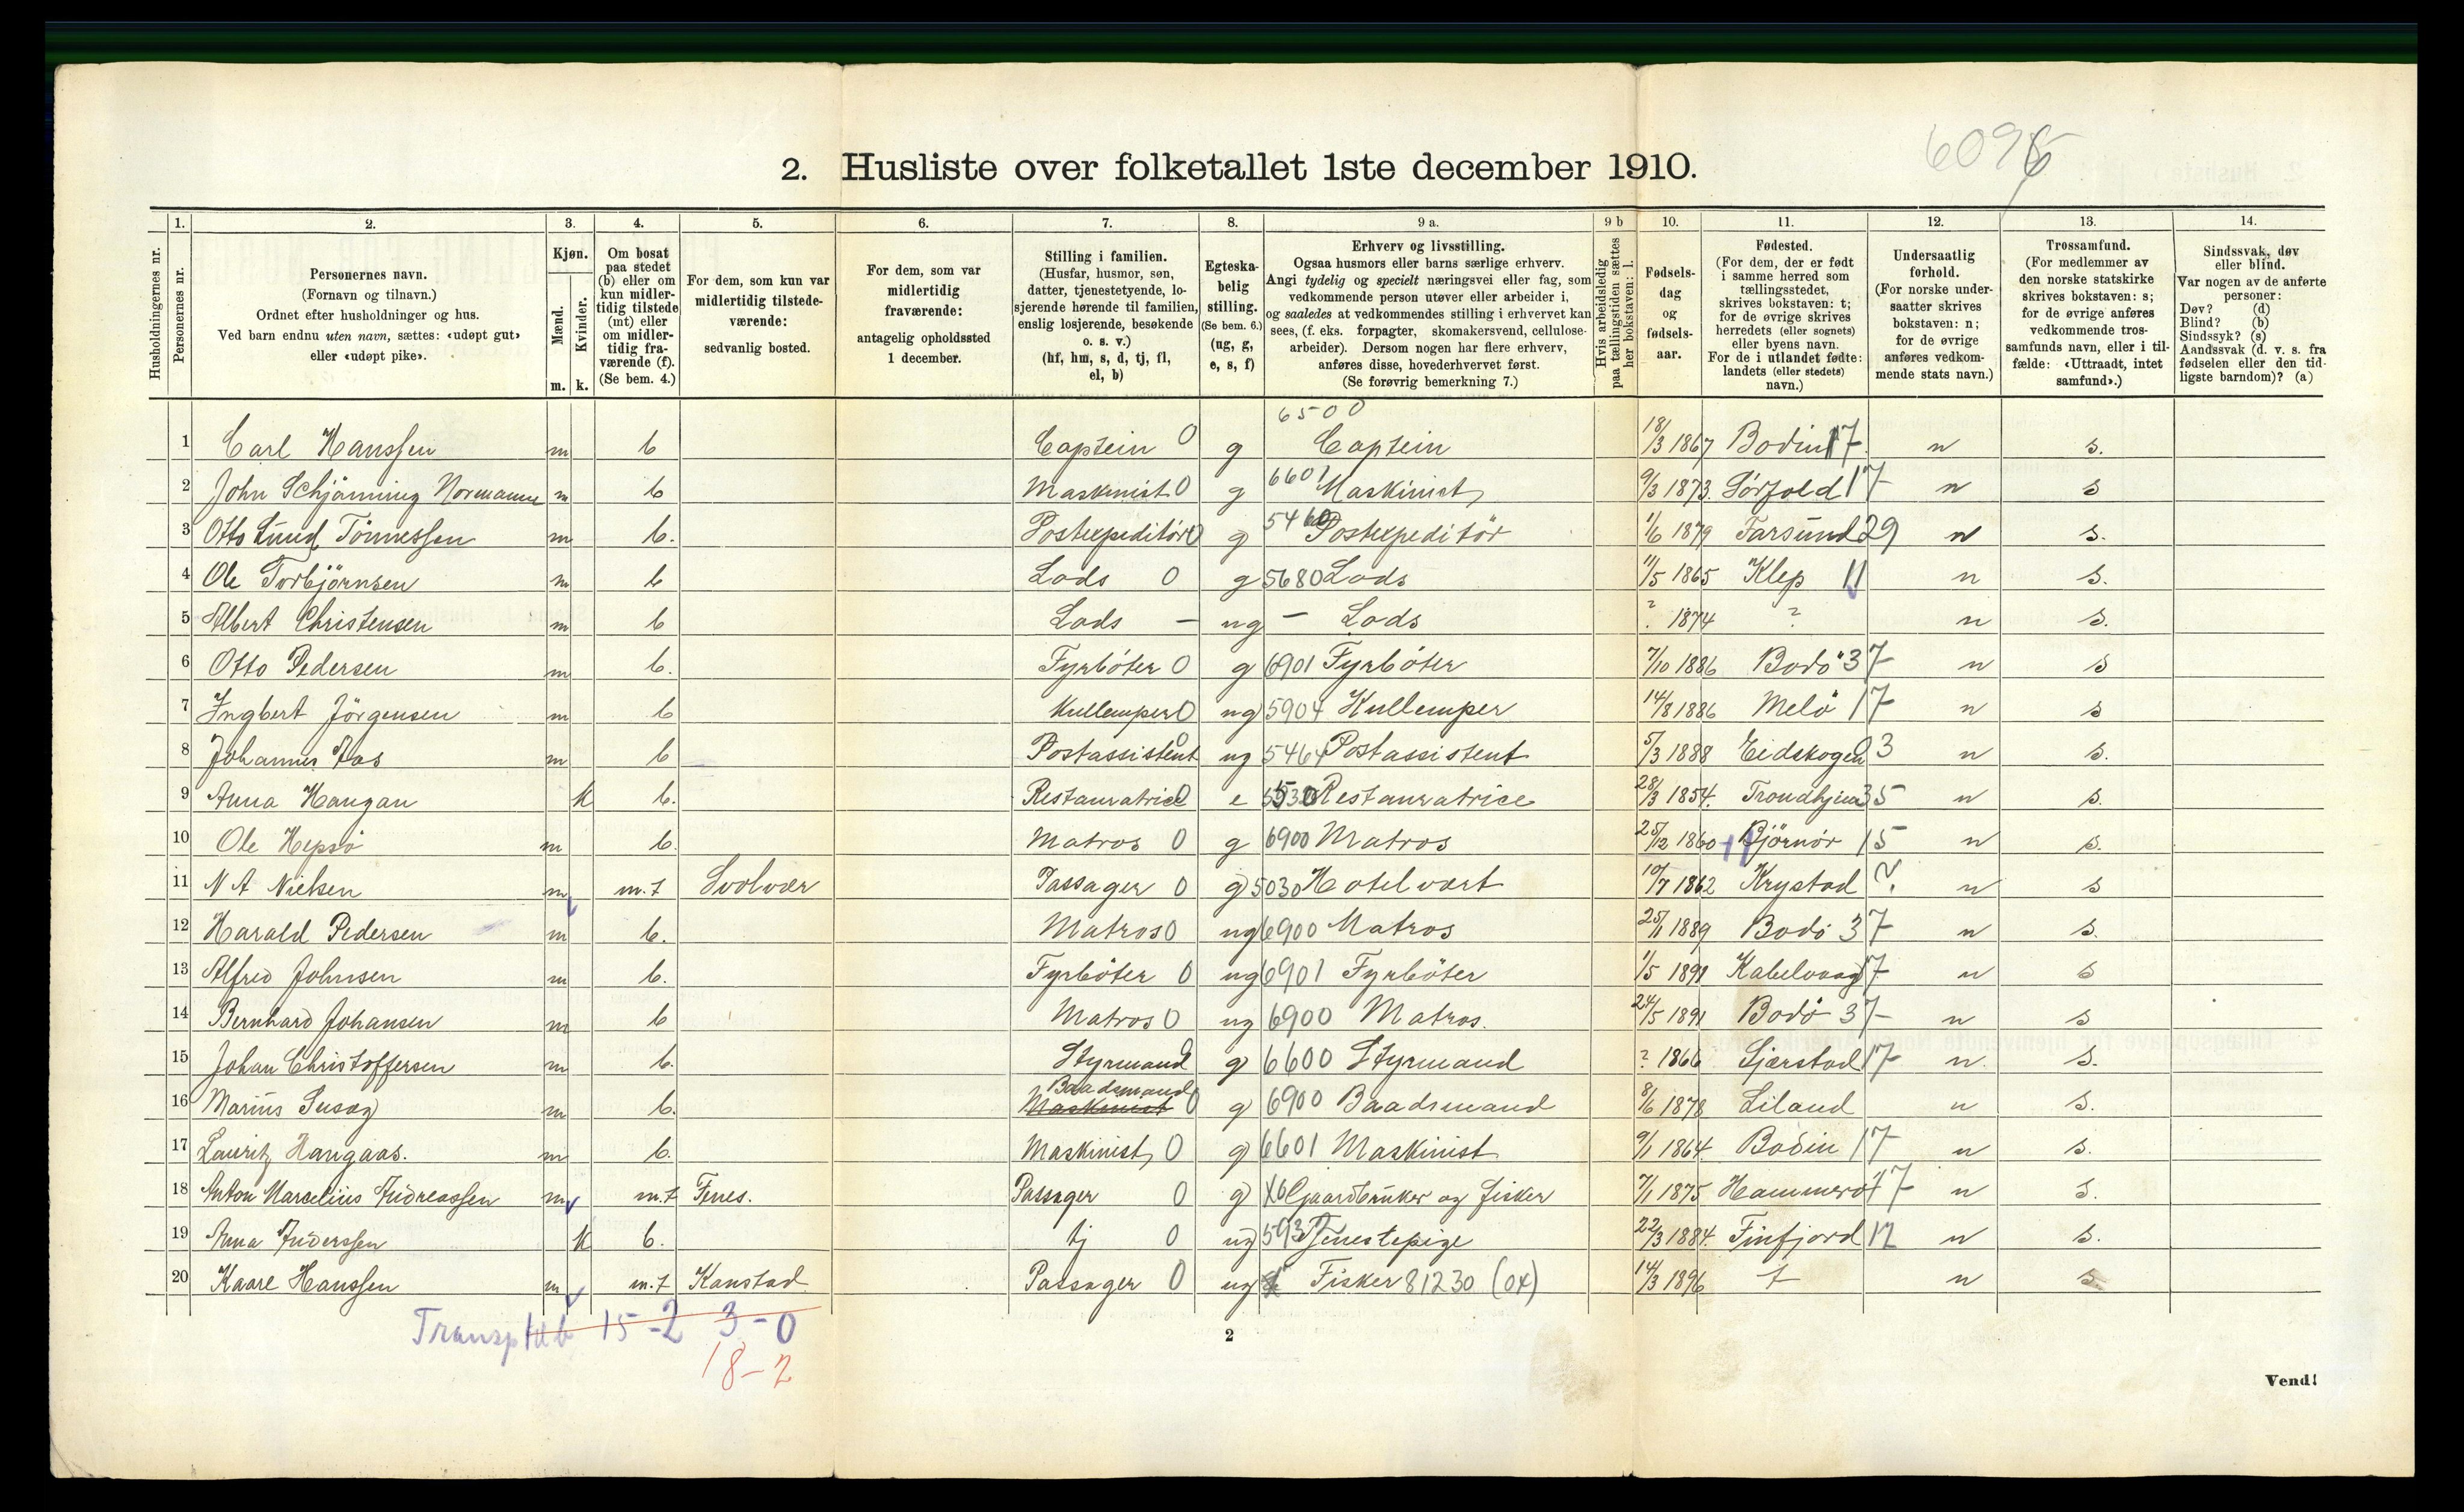 6095
2. Husliste over folketallet 1ste december 1910.
Husholdningernes nr.
1. Personernes nr.
2. Personernes navn.
(Fornavn og tilnavn.)
Ordnet efter husholdninger og hus.
Ved barn endnu uten navn, sættes: «udøpt gut»
eller «udøpt pike».
3. Kjøn.
Mænd. m.
Kvinder. k.
4. Om bosat
paa stedet
(b) eller om
kun midler-
tidig tilstede
(mt) eller
om midler-
tidig fra-
værende (f).
(Se bem. 4.)
5. For dem, som kun var
midlertidig tilstede-
værende:
sedvanlig bosted.
6. For dem, som var
midlertidig
fraværende:
antagelig opholdssted
1 december.
7. Stilling i familien.
(Husfar, husmor, søn,
datter, tjenestetyende, lo-
sjerende hørende til familien,
enslig losjerende, besøkende
o. s. v.)
(hf, hm, s, d, tj, fl,
el, b)
8. Egteska-
belig
stilling.
(Se bem. 6.)
(ug, g,
e, s, f)
9 a. Erhverv og livsstilling.
Ogsaa husmors eller barns særlige erhverv.
Angi tydelig og specielt næringsvei eller fag, som
vedkommende person utøver eller arbeider i,
og saaledes at vedkommendes stilling i erhvervet kan
sees, (f. eks. forpagter, skomakersvend, cellulose-
arbeider). Dersom nogen har flere erhverv,
anføres disse, hovederhvervet først.
(Se forøvrig bemerkning 7.)
9 b Hvis arbeidsledig
paa tællingstiden sættes
her bokstaven: l.
10. Fødsels-
dag
og
fødsels-
aar.
11. Fødested.
(For dem, der er født
i samme herred som
tællingsstedet,
skrives bokstaven: t;
for de øvrige skrives
herredets (eller sognets)
eller byens navn.
For de i utlandet fødte:
landets (eller stedets)
navn.)
12. Undersaatlig
forhold.
(For norske under-
saatter skrives
bokstaven: n;
for de øvrige
anføres vedkom-
mende stats navn.)
13. Trossamfund.
(For medlemmer av
den norske statskirke
skrives bokstaven: s;
for de øvrige anføres
vedkommende tros-
samfunds navn, eller i til-
fælde: «Uttraadt, intet
samfund».)
14. Sindssvak, døv
eller blind.
Var nogen av de anførte
personer:
Døv? (d)
Blind? (b)
Sindssyk? (s)
Aandssvak (d. v. s. fra
fødselen eller den tid-
ligste barndom)? (a)
6500
1 Carl Hanssen m b Captein 0 g Captein 18/3 1867 Bodin 17 n s.
2 John Schjönning Normann m b Maskinist 0 g 6601 Maskinist 9/3 1873. Sørfold 17 n s
3 Otto Lund Tönnessen m b. Postexpeditör 0 g 5460 Postexpeditör 1/6 1879 Farsund 29 n s.
4 Ole Torbjörnsen m b Lods 0 g 5680 Lods 11/5 1865 Klep 11 n s.
5 Albert Christensen m b Lods – ug – Lods ? 1874 ? n s.
6 Otto Pedersen m b. Fyrböter 0 g 6901 Fyrböter 7/10 1886 Bodö 37 n s
7 Ingbert Jörgensen m b Kullemper 0 ug 5904 Kullemper 14/8 1886 Melö 17 n s
8 Johannes Aas m b Postassistent 0 ug 5464 Postassistent 5/3 1888 Eidskogen 3 n s.
9 Anna Haugan k b. Restauratrice 0 e 5530 Restauratrice 28/3 1854. Trondhjem 35 n s.
10 Ole Hepsö m b. Matros 0 g 6900 Matros 25/12 1860 Björnör 15 n s.
11 N A Nielsen m m.t Svolvær Passager 0 g 5030 Hotelvært 10/7 1862 Krystad ? n s
12 Harald Pedersen m b. Matros 0 ug 6900 Matros 25/1 1889 Bodö 37 n s.
13 Alfred Johnsen m b. Fyrböter 0 ug 6901 Fyrböter 1/5 1891 Kabelvaag 17 n s
14 Bernhard Johansen m b Matros 0 ug 6900 Matros. 24/5 1891 Bodö 37 n s
15 Johan Christoffersen m b. Styrmand 0 g 6600 Styrmand ? 1866 Gjærstad 17 n. s.
Baadsmand
16 Marius m b. Maskinist 0 g 6900 Baadsmand 8/6 1878 Liland n s.
17 Lauritz Haugaas. m b. Maskinist 0 g 6601 Maskinist 9/1 1864. Bodin 17 n s.
18 Anton Marcelius Andreassen m m.t Fines. Passager 0 g X6 Gaardbruker og fisker 7/1 1875 Hammerö 17 n s.
19 Anna Anderssen k b. tj 0 ug 5937 Tjenestepige 22/3 1884. Finfjord 17 n s.
20 Kaare Hanssen m m.t Kanstad Passager 0 ug Fisker 81230 (04) 14/3 1896 t n s.
Transp 15-2 3-0
18-2
2
Vend!